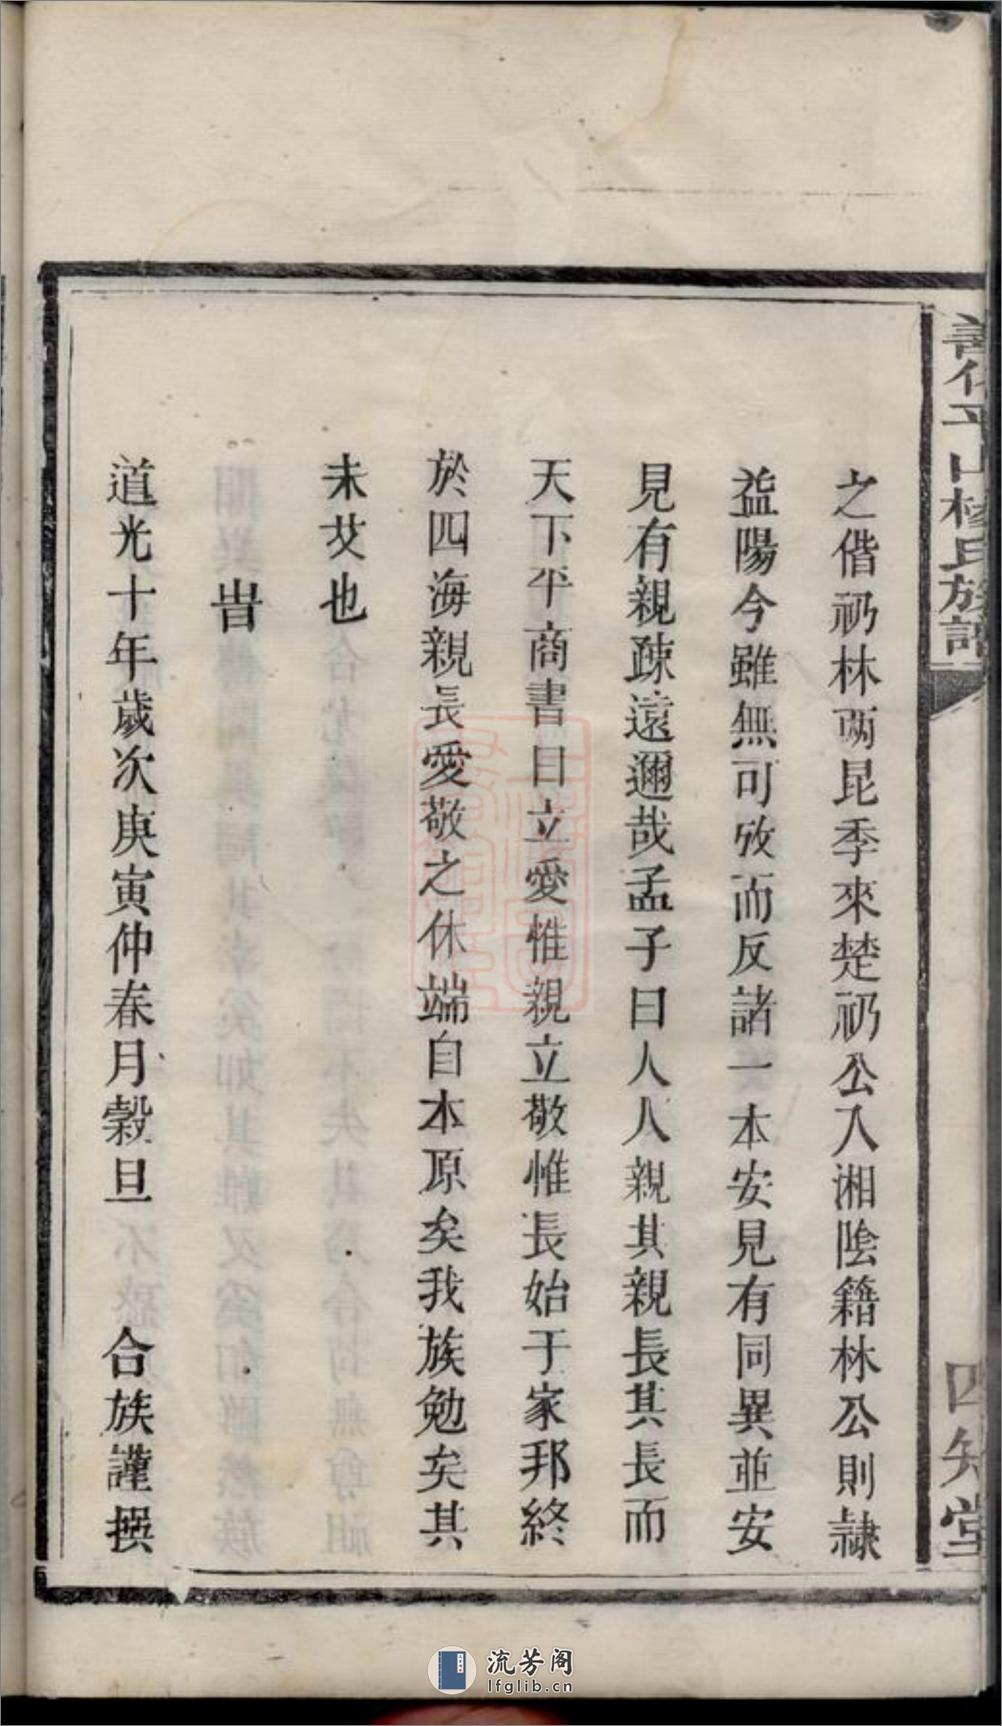 善化平山楊氏族譜
四知堂
之偕礽林兩昆季來楚礽公入湘陰籍林公則隸
益陽今雖無可攷而反諸一本安見有同異並安
見有親疎遠邇哉孟子曰人人親其親長其長而
天下平商書曰立愛惟親立敬惟長始于家邦終
於四海親長愛敬之休端自本原矣我族勉矣其
未艾也
旹
道光十年歲次庚寅仲春月穀旦 合族謹撰
流芳阁
lfglib.cn